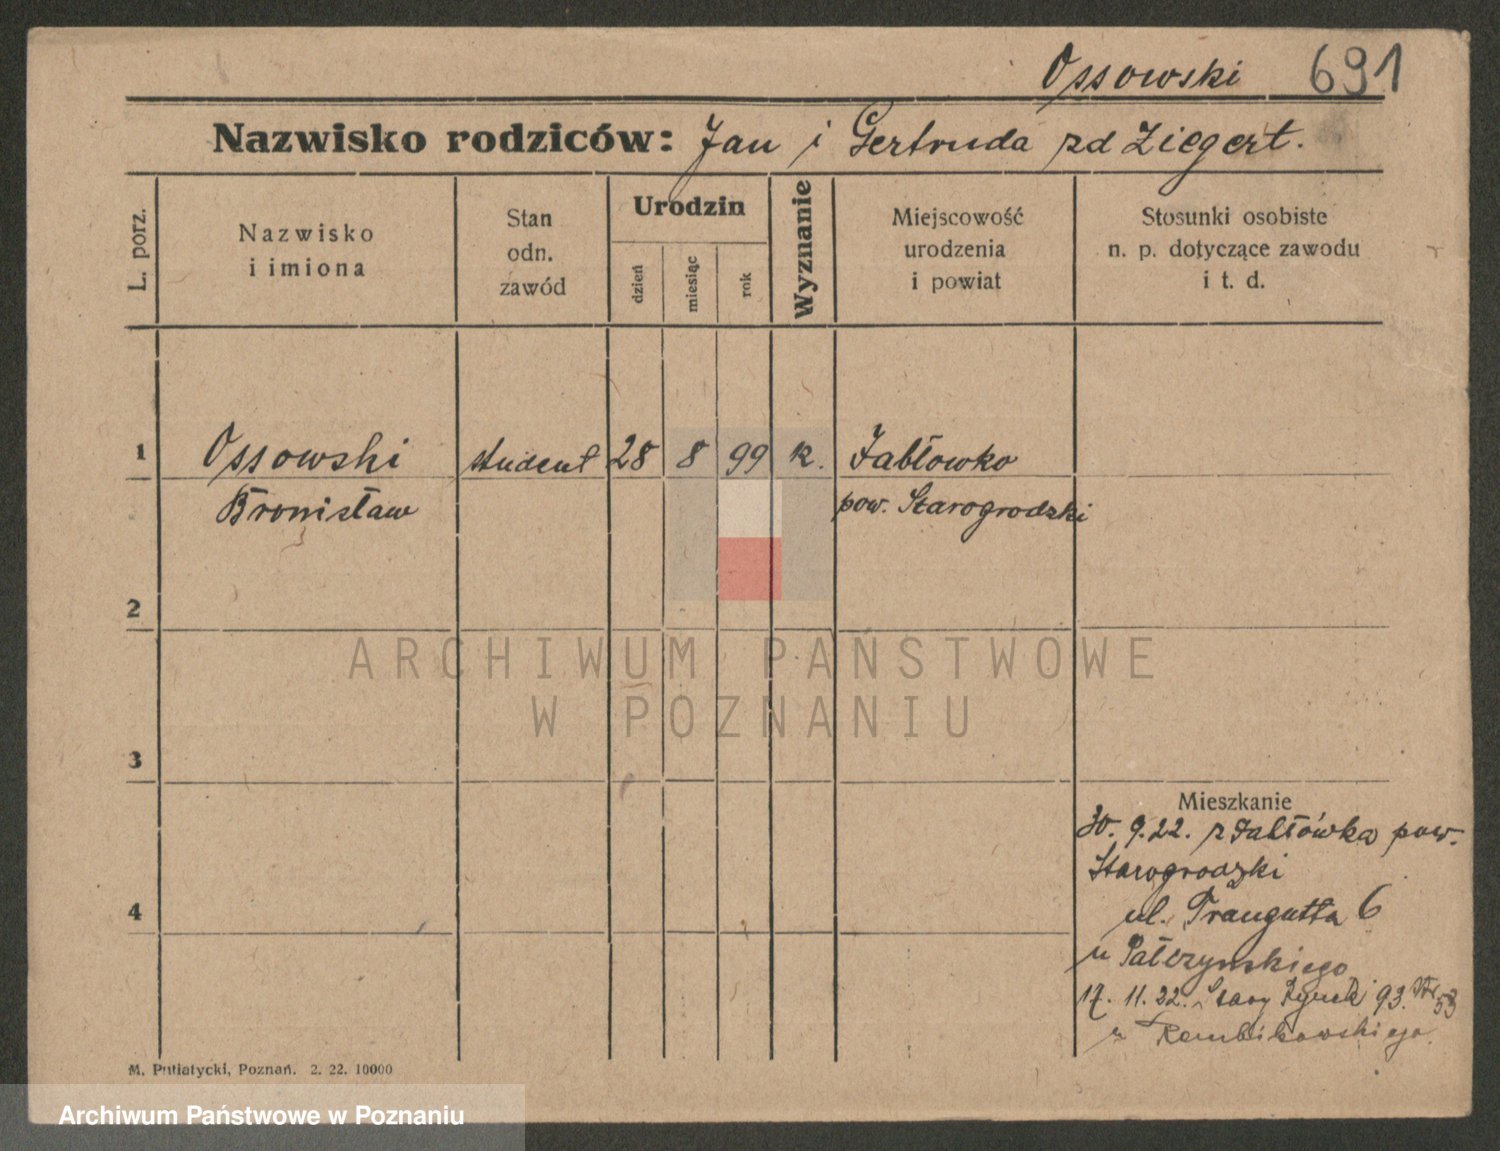 Ossowski 691
Nazwisko rodziców: Jan i Gertruda zd Ziegert.
L. porz.
Nazwisko
i imiona
Stan
odn.
zawód
Urodzin
dzień
miesiąc
rok
Wyznanie
Miejscowość
urodzenia
i powiat
Stosunki osobiste
n. p. dotyczące zawodu
i t. d.
1 Ossowski student 28 8 99 k. Jabłowko
Bronisław pow. Starogrodzki
2
ARCHIWUM PAŃSTWOWE
W POZNANIU
3
Mieszkanie
30. 9. 22. z Jabłówka pow.
Starogrodzki
4
ul. Traugutta 6
u Pałczynskiego
17. 11. 22. Stary Rynek 93. 53
u
M. Putiatycki, Poznań. 2. 22. 10000
Archiwum Państwowe w Poznaniu